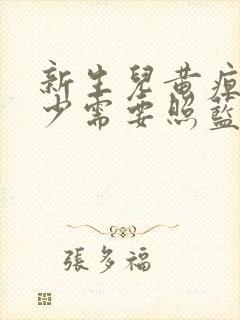 新生兒黃疸
少需要照藍
張多福